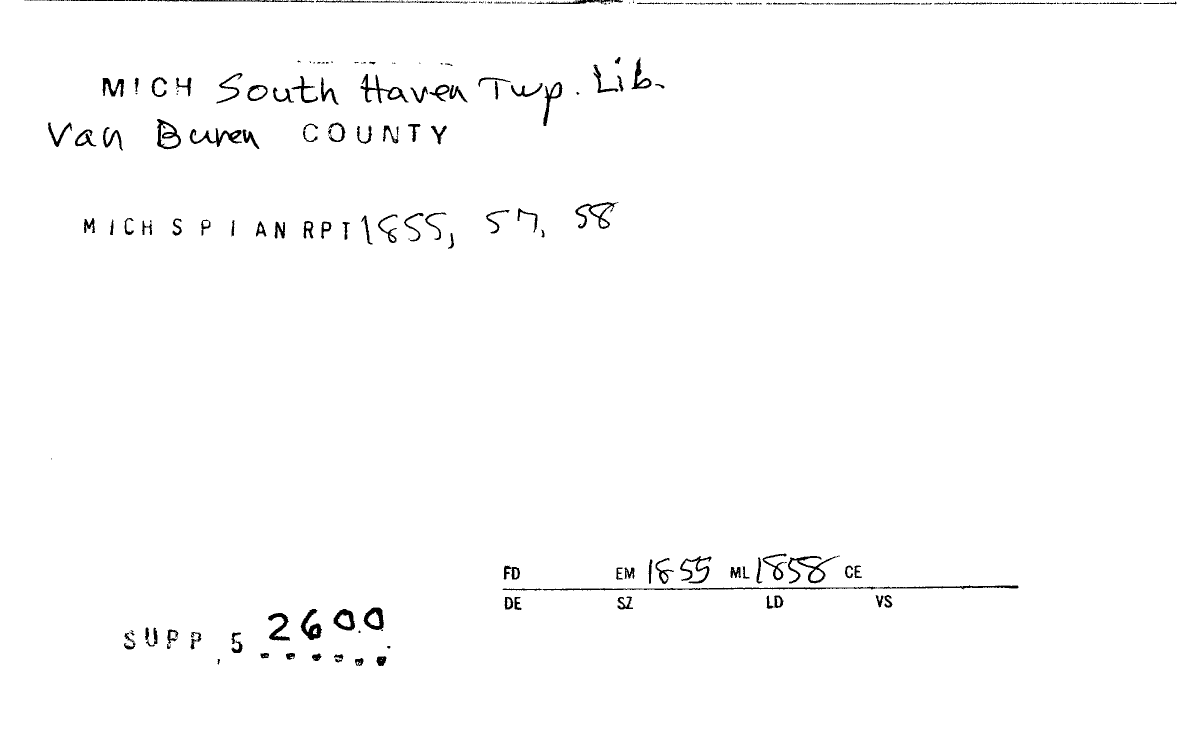 MICH South Haven Twp. Lib.
Van Buren COUNTY
MICH S P I AN RPT 1855, 57, 58
FD EM 1855 ML 1858 CE
DE SZ LD VS
SUPP, 5 2600